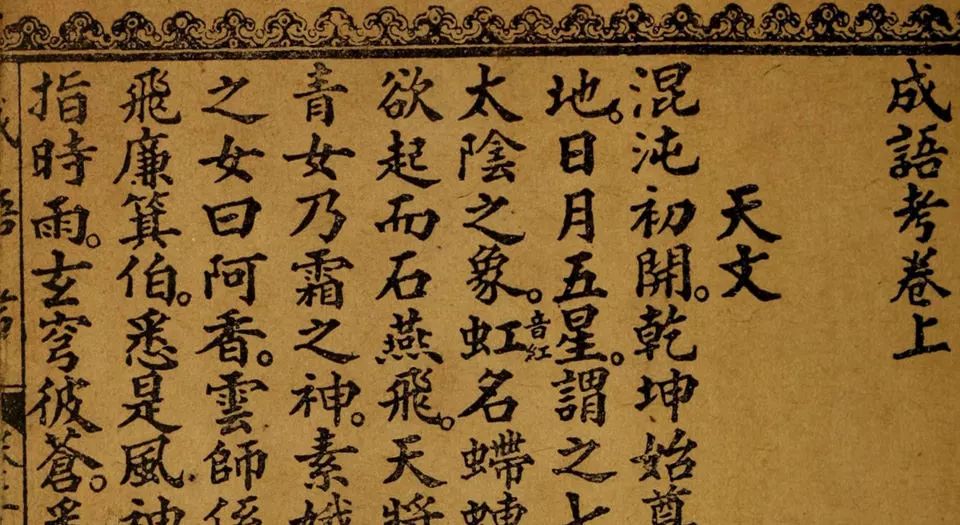 成語考卷上
天文
混沌初開。乾坤始奠
地。日月五星。謂之七
太陰之象。虹音紅名螮蝀
欲起而石燕飛。天將
青女乃霜之神。素娥
之女曰阿香。雲師係
飛廉箕伯。悉是風神
指時雨。玄穹彼蒼。悉